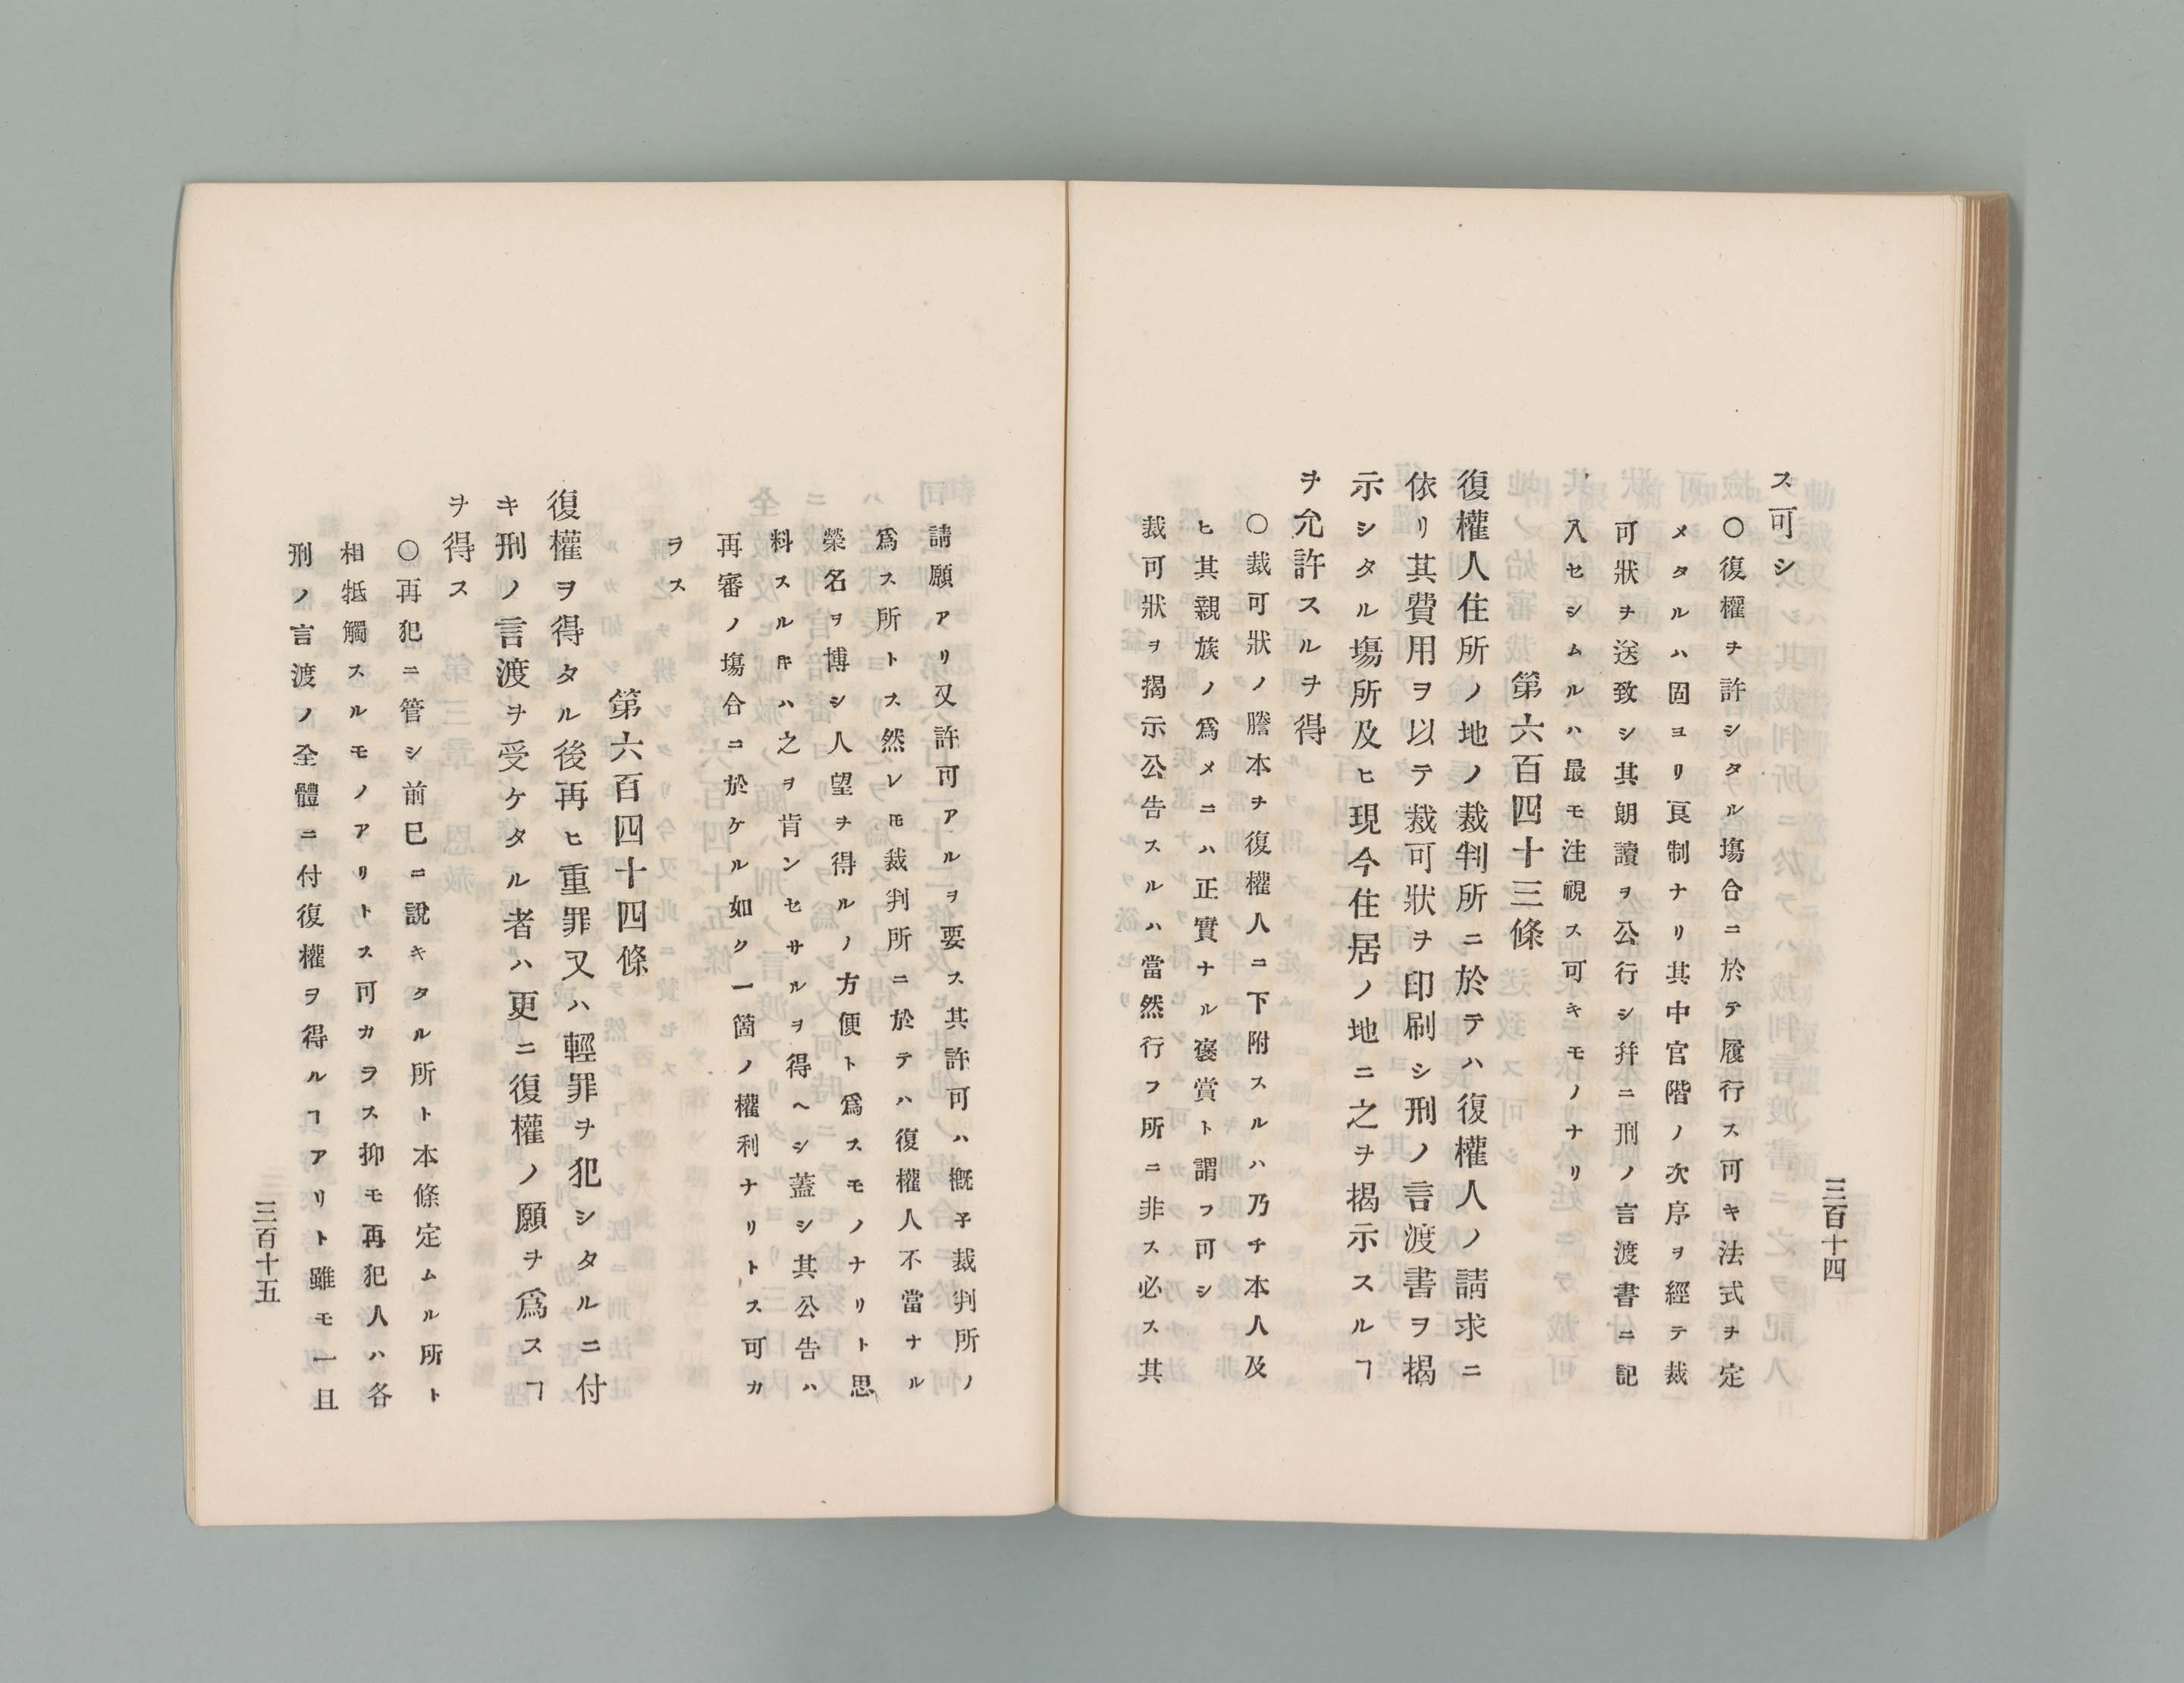 ス可シ
〇復權ヲ許シタル塲合ニ於テ履行ス可キ法式ヲ定
メタルハ固ヨリ良制ナリ其中官階ノ次序ヲ經テ裁
可狀ヲ送致シ其朗讀ヲ公行シ幷ニ刑ノ言渡書ニ記
入セシムルハ最モ注視ス可キモノナリ
第六百四十三條
復權人住所ノ地ノ裁判所ニ於テハ復權人ノ請求ニ
依リ其費用ヲ以テ裁可狀ヲ印刷シ刑ノ言渡書ヲ揭
示シタル塲所及ヒ現今住居ノ地ニ之ヲ揭示スルヿ
ヲ允許スルヲ得
〇裁可狀ノ謄本ヲ復權人ニ下附スルハ乃チ本人及
ヒ其親族ノ爲メニハ正實ナル褒賞ト謂フ可シ
裁可狀ヲ揭示公告スルハ當然行フ所ニ非ス必ス其
三百十四
請願アリ又許可アルヲ要ス其許可ハ槪子裁判所ノ
爲ス所トス然レ𪜈裁判所ニ於テハ復權人不當ナル
榮名ヲ博シ人望ヲ得ルノ方便ト爲スモノナリト思
料スルキハ之ヲ肯ンセサルヲ得ヘシ蓋シ其公告ハ
再審ノ塲合ニ於ケル如ク一箇ノ權利ナリトス可カ
ラス
第六百四十四條
復權ヲ得タル後再ヒ重罪又ハ輕罪ヲ犯シタルニ付
キ刑ノ言渡ヲ受ケタル者ハ更ニ復權ノ願ヲ爲スヿ
ヲ得ス
〇再犯ニ管シ前已ニ說キタル所ト本條定ムル所ト
相牴觸スルモノアリトス可カラス抑モ再犯人ハ各
刑ノ言渡ノ全體ニ付復權ヲ得ルヿアリト雖モ一且
三百十五